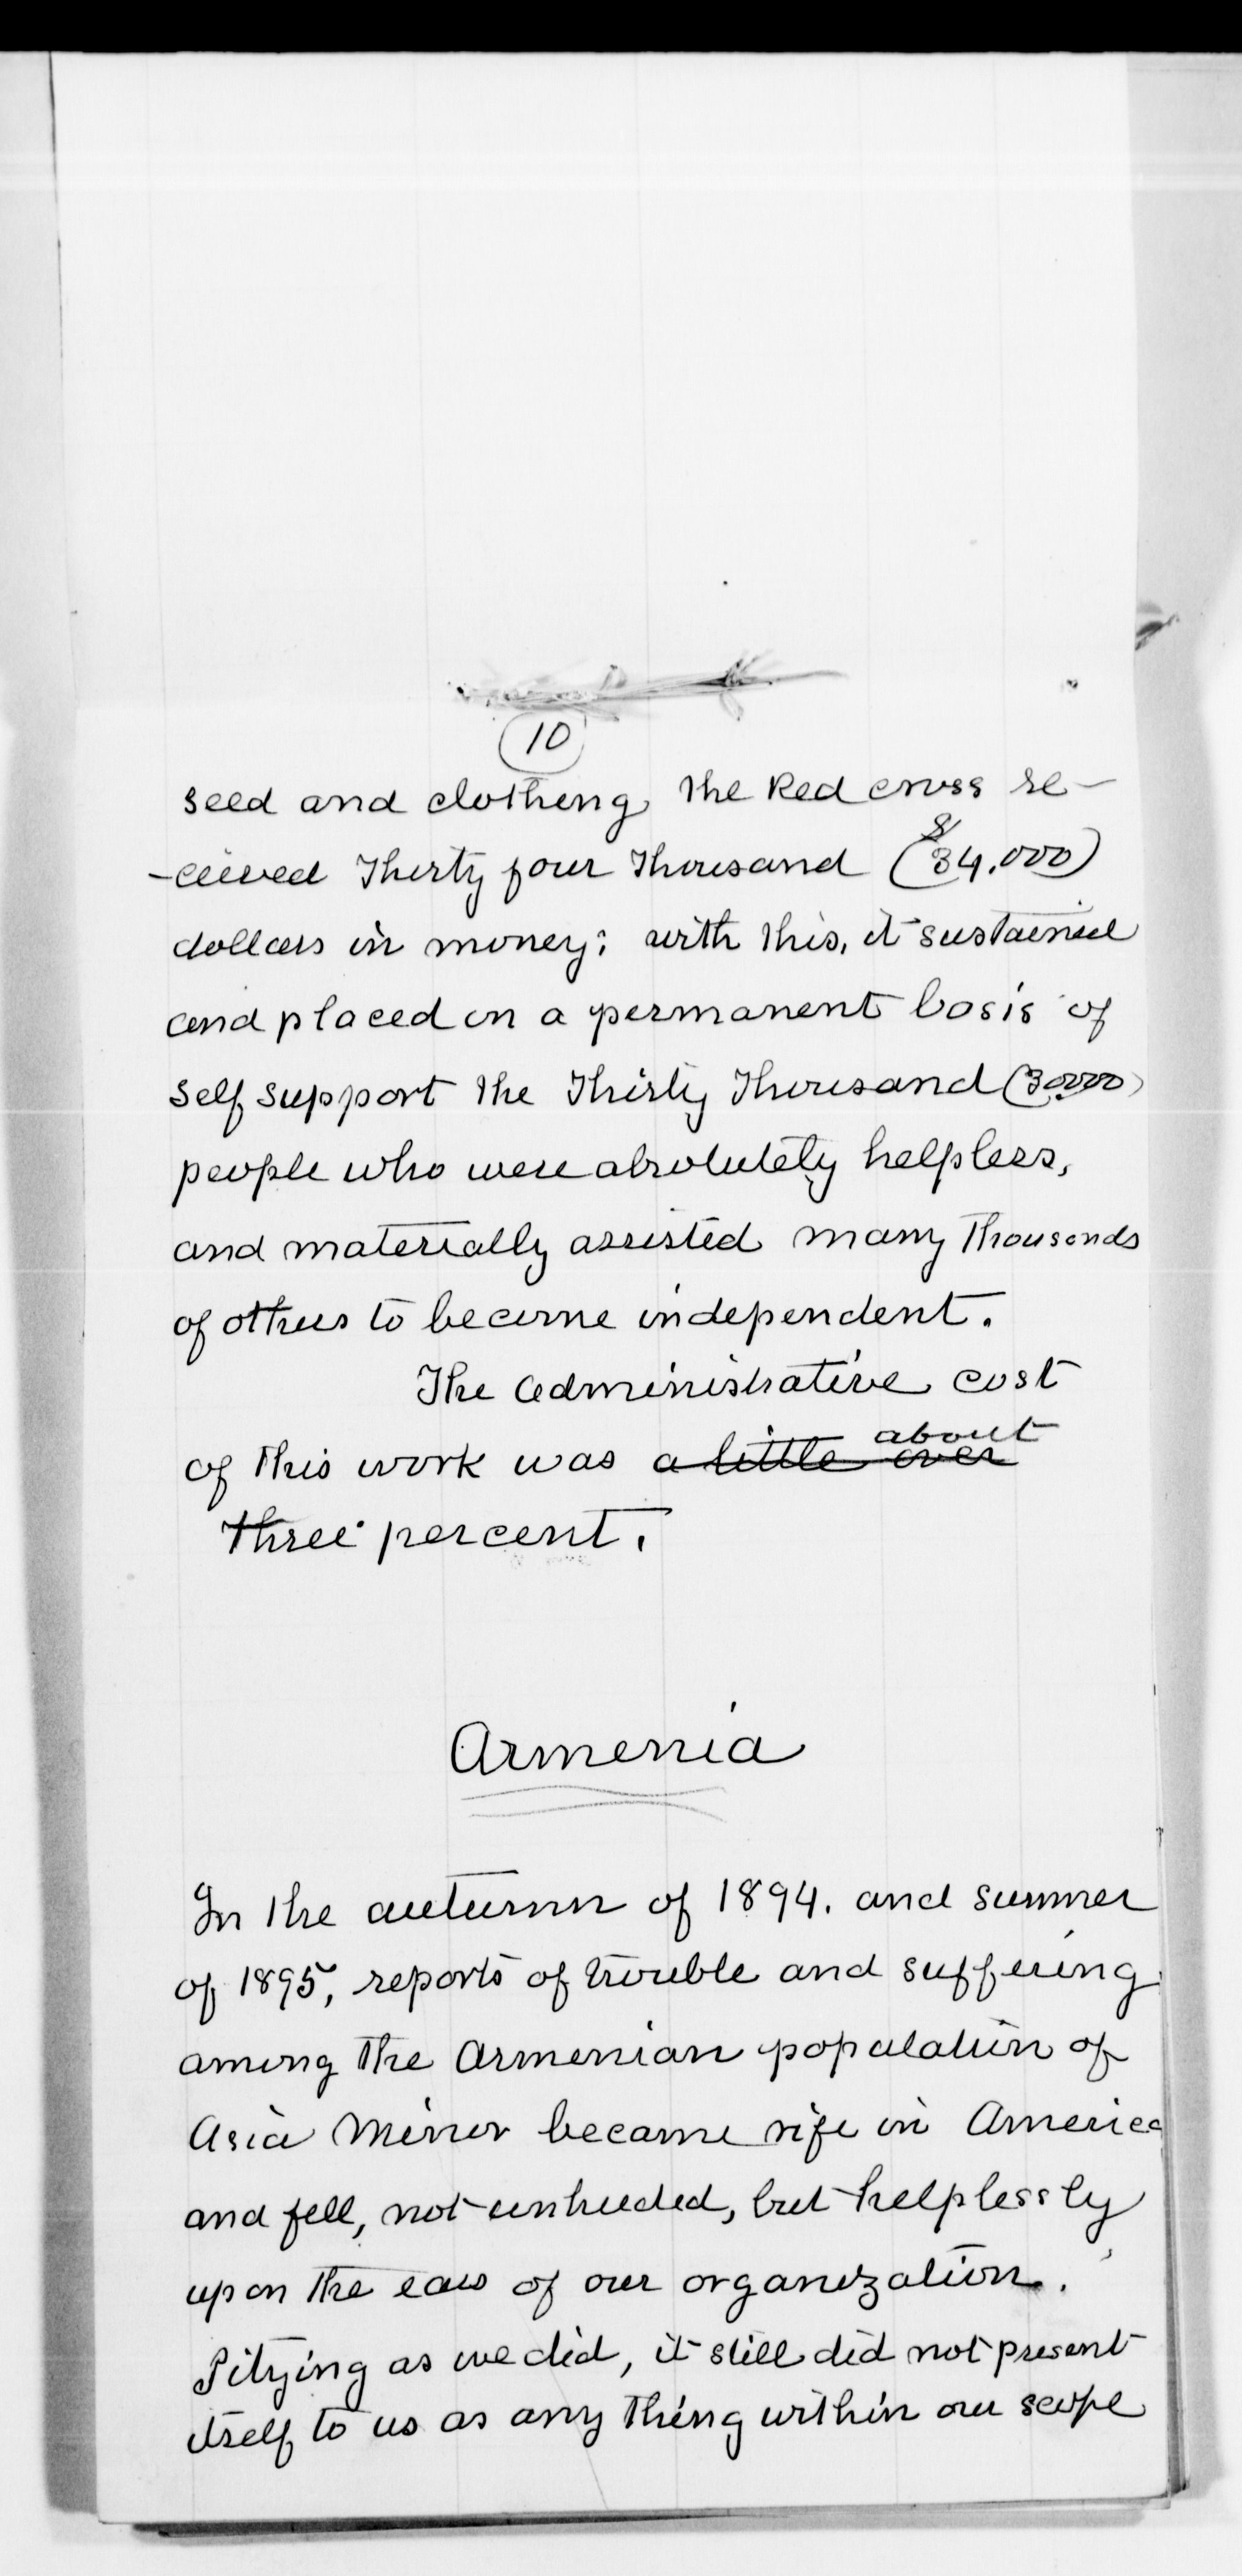 10
seed and clothing the Red cross re-
-ceived Thirty four Thousand ($34.000)
dollars in money; with this, it sustained
and placed on a permanent basis of
self support the Thirty Thousand (30000)
people who were absolutely helpless,
and materially assisted many Thousands
of others to become independent.
The administrative cost
about
of this work was a little over
three percent.
Armenia
In the autumn of 1894. and summer
of 1895, reports of trouble and suffering
among the Armenian population of
Asia Minor became rife in America
and fell, not unheeded, but helplessly
upon the ears of our organization.
Pitying as we did, it still did not present
itself to us as any thing within our scope